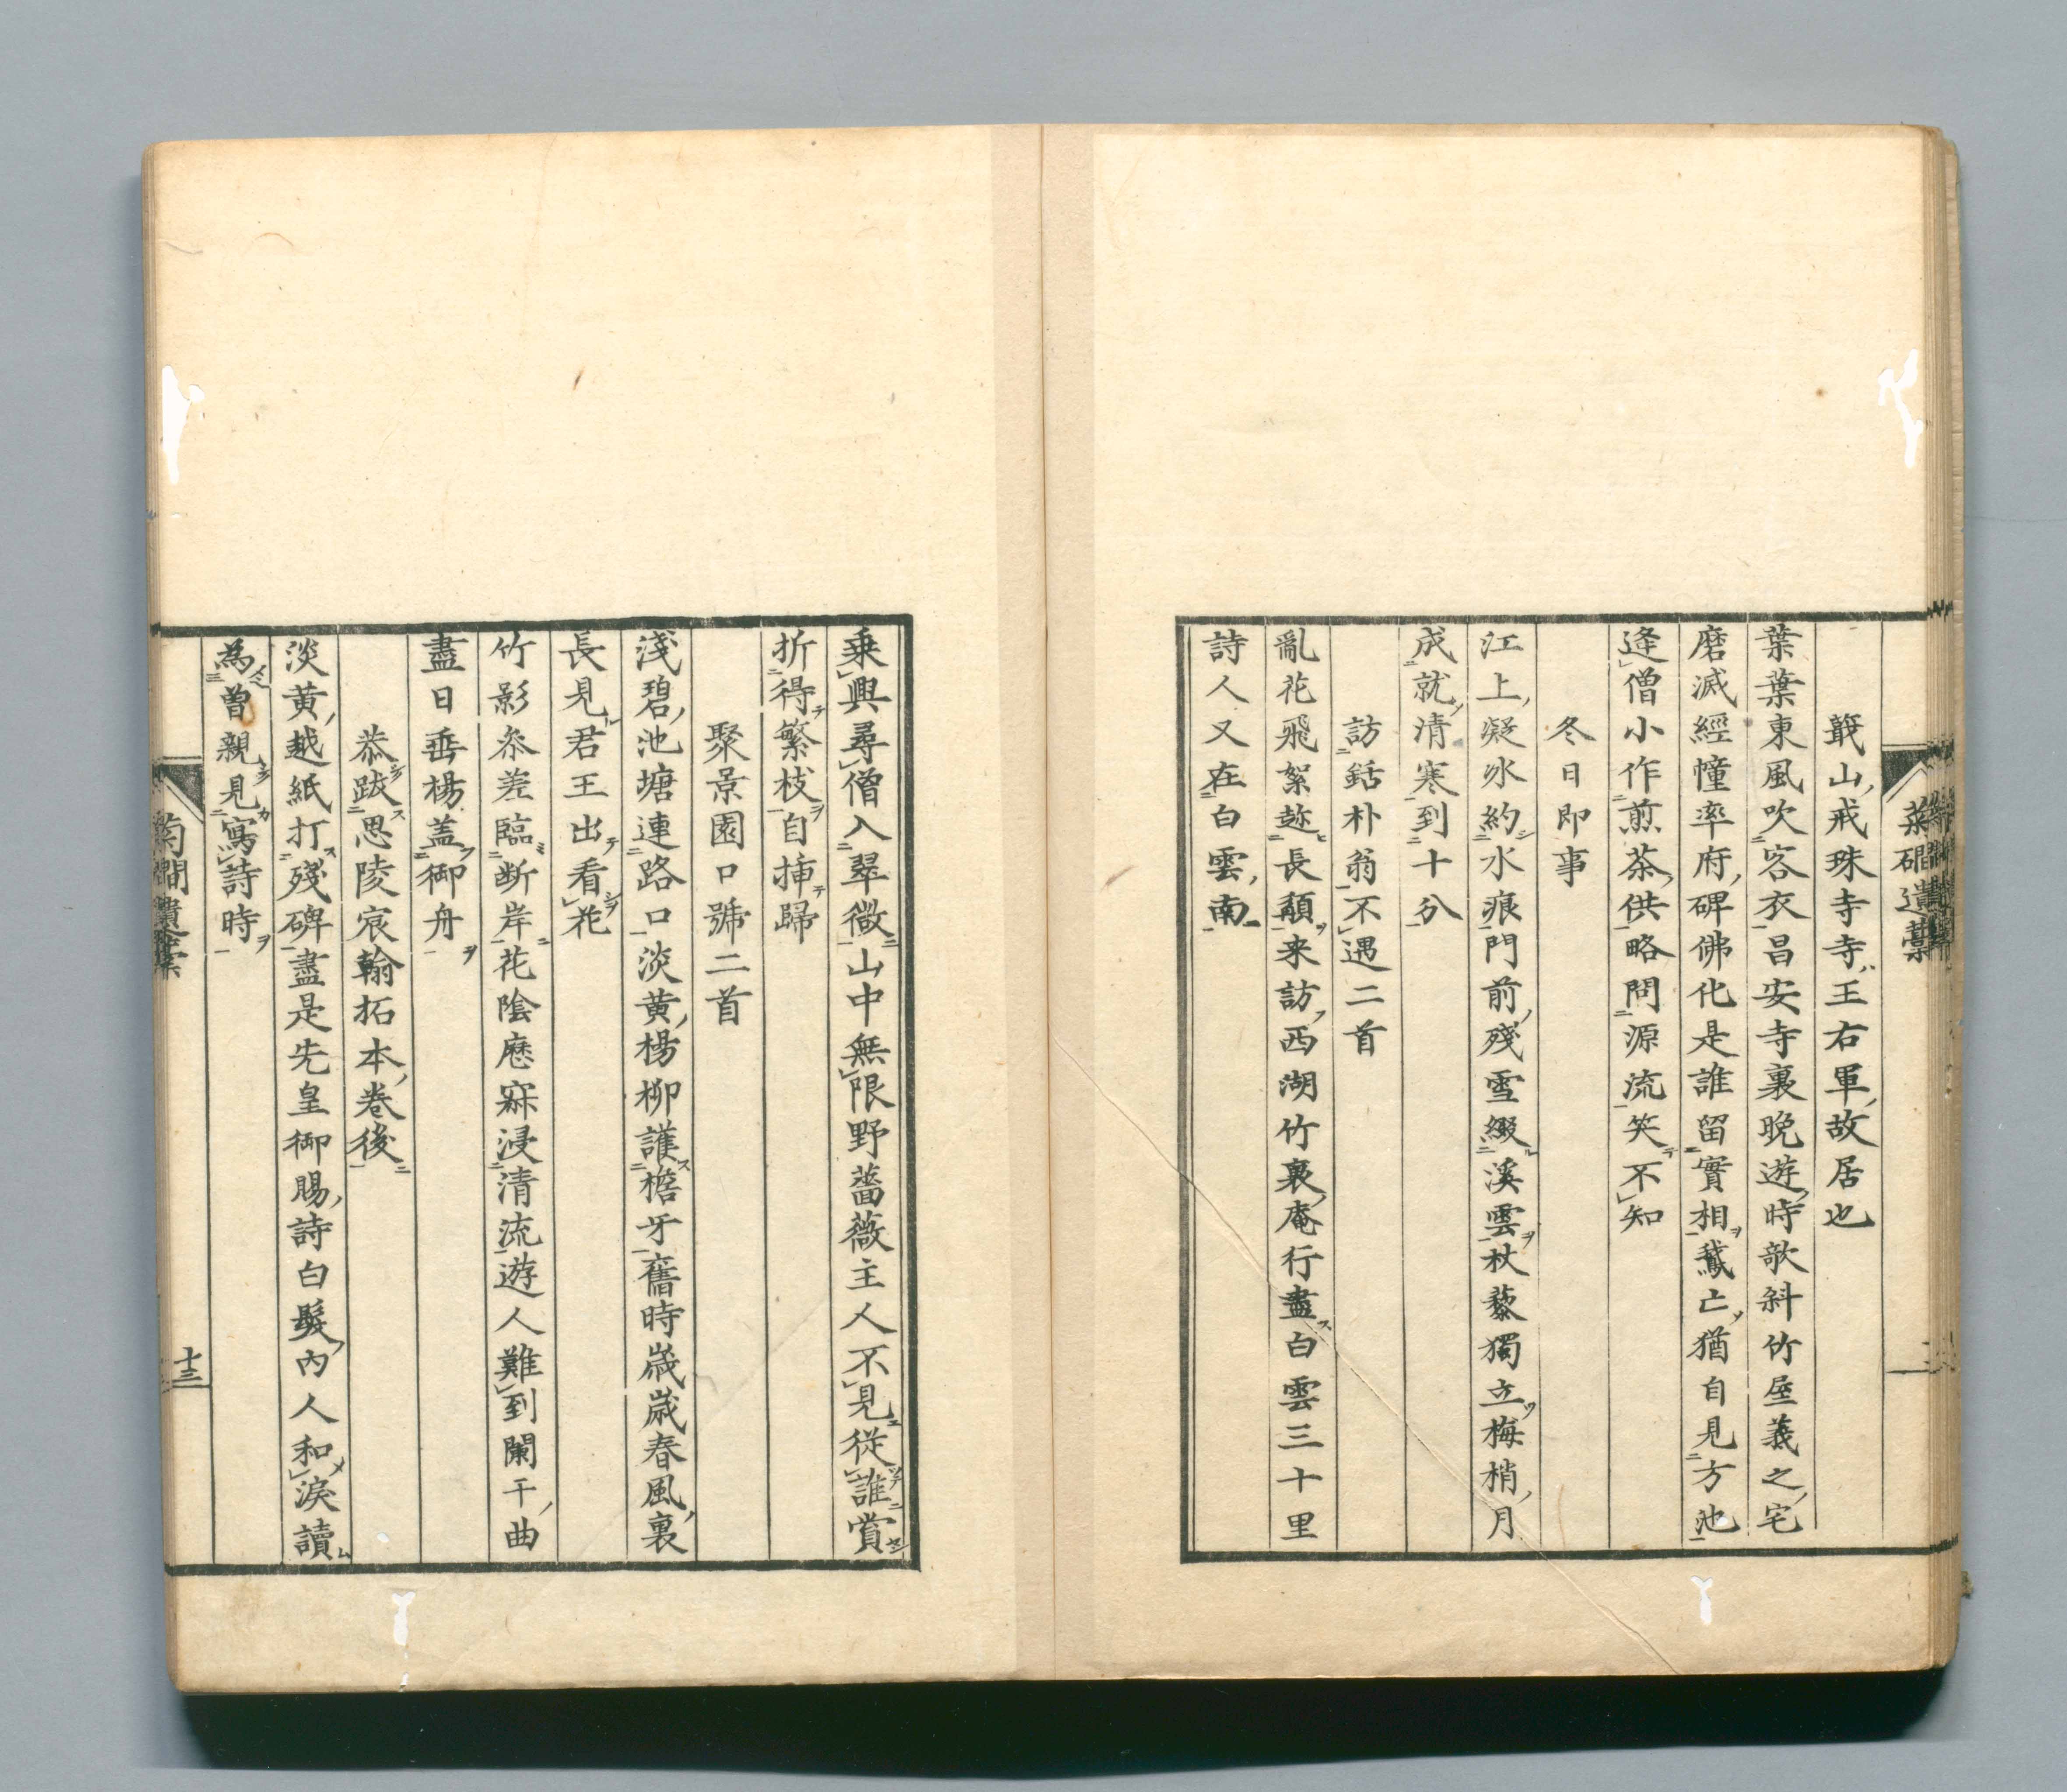 菜磵遺藁
蕺山戒珠寺寺王右軍故居也
葉葉東風吹客衣昌安寺裏晚遊時欹斜竹屋羲之宅
磨滅經幢率府碑佛化是誰留實相鵞亡猶自見方池
逢僧小作煎茶供略問源流笑不知
冬日即事
江上凝冰約水痕門前殘雪綴溪雲杖藜獨立梅梢月
成就清寒到十分
訪銛朴翁不遇二首
亂花飛絮趂長顰来訪西湖竹裏庵行盡白雲三十里
詩人又在白雲南
乗興尋僧入翠微山中無限野薔薇主人不見從誰賞
折得繁枝自揷歸
聚景園口號二首
淺碧池塘連路口淡黄楊柳護檐牙舊時嵗嵗春風裏
長見君王出看花
竹影参差臨断岸花陰庬寐浸清流遊人難到闌干曲
盡日垂楊盖御舟
恭跋思陵宸翰拓本巻後
淡黄越紙打殘碑盡是先皇御賜詩白髮內人和淚讀
為曽親見寫詩時
菊磵遺藁
十三